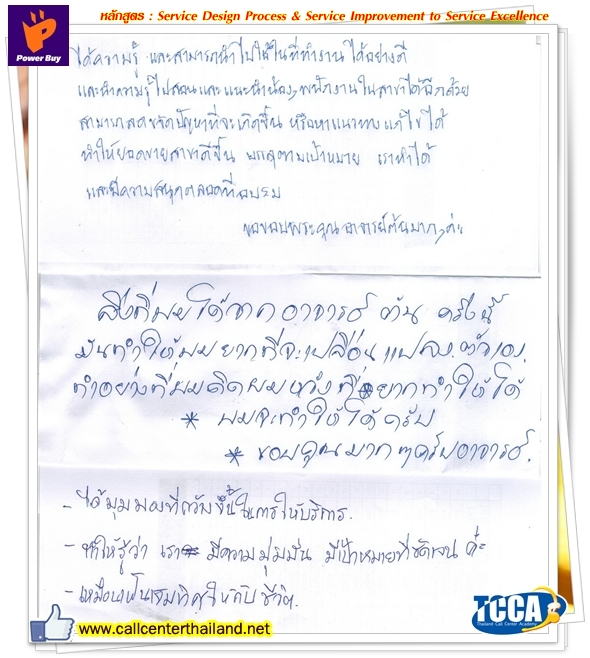 หลักสูตร : Service Design Process & Service Improvement to Service Excellence
Power Buy
ได้ความรู้ และสามารถนำไปใช้ในที่ทำงานได้อย่างดี
และนำความรู้ไปสอนและแนะนำน้องๆพนักงานในสาขาได้อีกด้วย
สามารถลดขจัดปัญหาที่จะเกิดขึ้น หรือหาแนวทางแก้ไขได้
ทำให้ยอดขายสาขาดีขึ้น บรรลุตามเป้าหมาย เราทำได้
และมีความสนุกตลอดที่อบรม
ขอขอบพระคุณอาจารย์ต้นมากๆค่ะ
สิ่งที่ผมได้จาก อาจารย์ ต้น ครั้งนี้
มันทำให้ผมอยากที่จะเปลี่ยนแปลงตัวเอง
ทำอย่างที่ผมคิดผมหวัง ที่อยากทำให้ได้
* ผมจะทำให้ได้ครับ
* ขอบคุณมากๆครับอาจารย์.
- ได้มุมมองที่กว้างขึ้นในการให้บริการ.
- ทำให้รู้ว่า เรา มีความมุ่งมั่น มีเป้าหมายที่ชัดเจน ค่ะ
- เหมือนเป็นเข็มทิศให้กับ ชีวิต.
www.callcenterthailand.net
TCCA
Thailand Call Center Academy